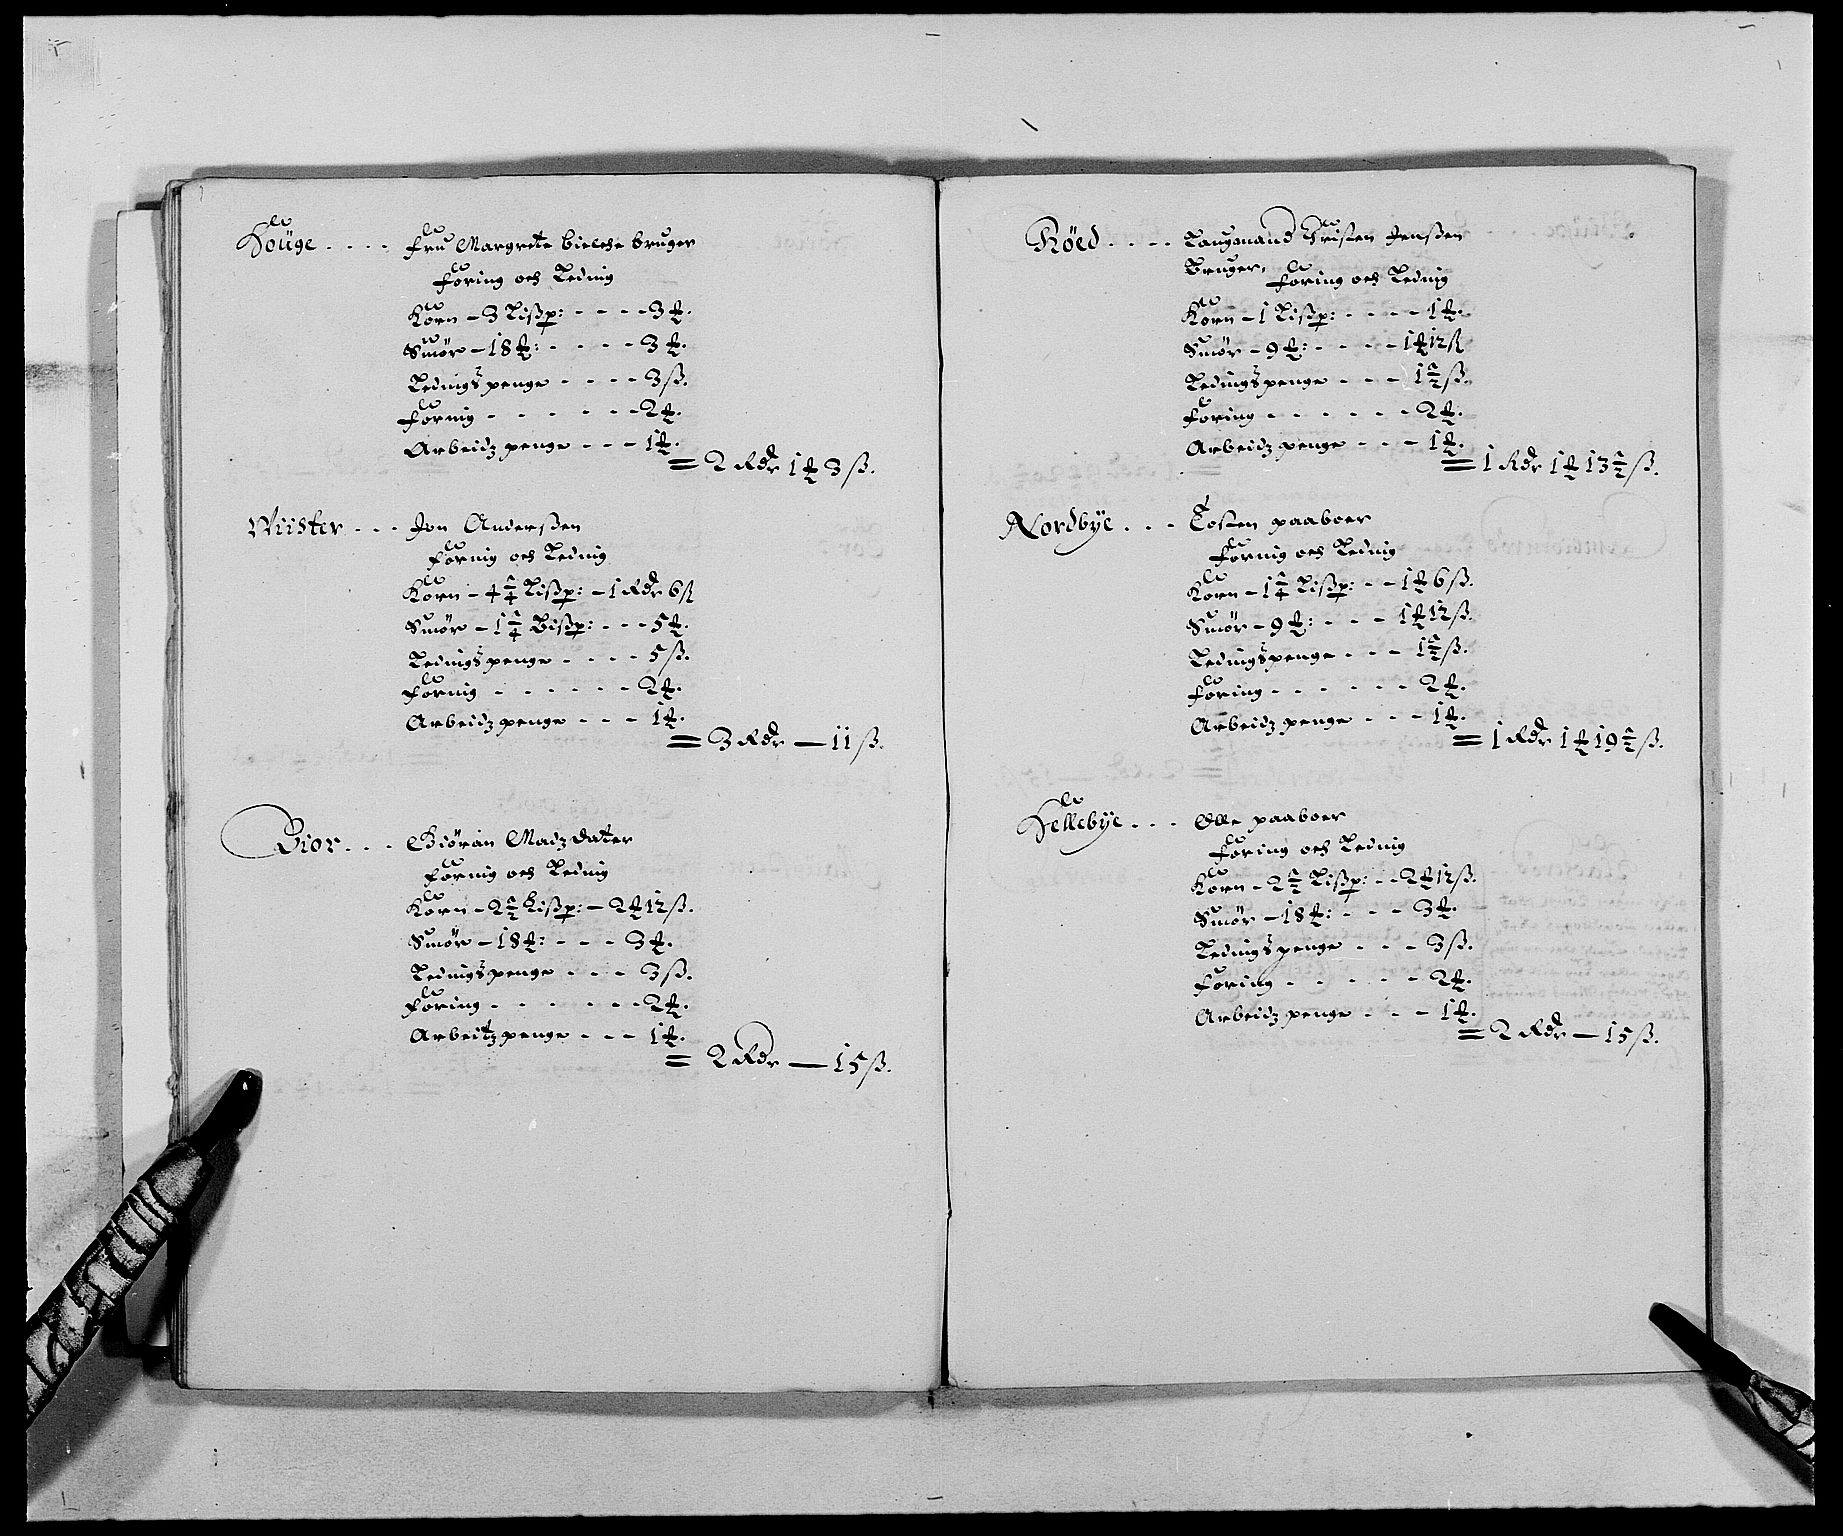 Houge . . . . Fru Margrete bielche bruger
Foring och Leding
Korn - 3 Lißp: - - - - 3 ₰.
Smör - 18 ₰: - - - - 3 ₰.
Ledingspenge - - - - 3 ß.
Foring - - - - - - - 2 ₰.
Arbeidz penge - - - 1 ₰.
= 2 Rdr 1 ₰ 3 ß.
Wiister - - - Jon Anderßen
Foring och Leding
Korn - 4 1/4 Lißp: - 1 Rdr 6 ß
Smör - 1 1/4 Bißp: - - - 5 ₰.
Ledingspenge - - - - 5 ß.
Foring - - - - - - 2 ₰.
Arbeidz penge - - - 1 ₰.
= 3 Rdr — 11 ß.
Bior. . . . Giöran Madz dater
Foring och Leding
Korn - 2 1/2 Lißp: - 2 ₰ 12 ß.
Smör - 18 ₰: - - - 3 ₰.
Ledingspenge - - - 3 ß.
Foring - - - - - - - 2 ₰.
Arbeitz penge - - - 1 ₰.
= 2 Rdr — 15 ß.
Röed. . . . Laugmand Christen Jenßen
Bruger, Foring och Leding
Korn - 1 Lißp: - - - - 1 ₰.
Smör - 9 ₰: - - - - 1 ₰ 12 ß
Ledingspenge - - - 1 1/2 ß.
Foring - - - - - - 2 ₰.
Arbeidz penge - - - 1 ₰.
= 1 Rdr 1 ₰ 13 1/2 ß.
Nordbÿe . . . Tosten paaboer
Foring och Leding
Korn - 1 1/4 Lißp: - - 1 ₰ 6 ß.
Smör - 9 ₰: - - - - 1 ₰ 12 ß.
Ledingspenge - - - 1 1/2 ß.
Foring - - - - - - 2 ₰.
Arbeidz penge - - - 1 ₰.
= 1 Rdr 1 ₰ 19 1/2 ß.
Hellebÿe . . . Olle paaboer
Foring och Leding
Korn - 2 1/2 Lißp: - - 2 ₰ 12 ß.
Smör - 18 ₰: - - - 3 ₰.
Ledingspenge - - - 3 ß.
Foring - - - - - - 2 ₰.
Arbeidz penge - - - 1 ₰.
= 2 Rdr — 15 ß.